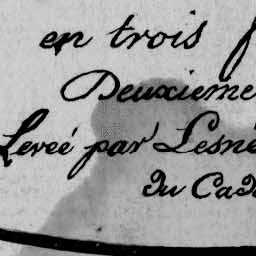 en trois f
Deuxieme
Levée par Lesne
du Cad